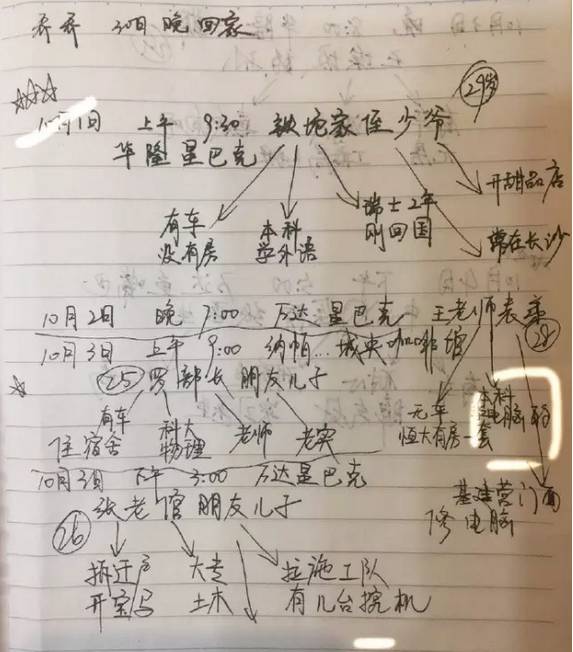 乔乔 30日晚回家
10月1日 上午 9:30 铁坨家侄少爷 29岁
华隆星巴克
有车
没有房
本科
学外语
瑞士2年
刚回国
开甜品店
常在长沙
10月2日 晚 7:00 万达星巴克 王老师表弟 28
10月3日 上午 9:00 纳帕...城央咖啡馆
25 罗部长朋友儿子
有车
住宿舍
科大
物理
老师
老实
无车
恒大有房一套
本科
电脑
门面
修电脑
10月3日 下午 3:00 万达星巴克
张老倌朋友儿子
26
拆迁户
开宝马
大专
土木
拉施工队
有几台挖机